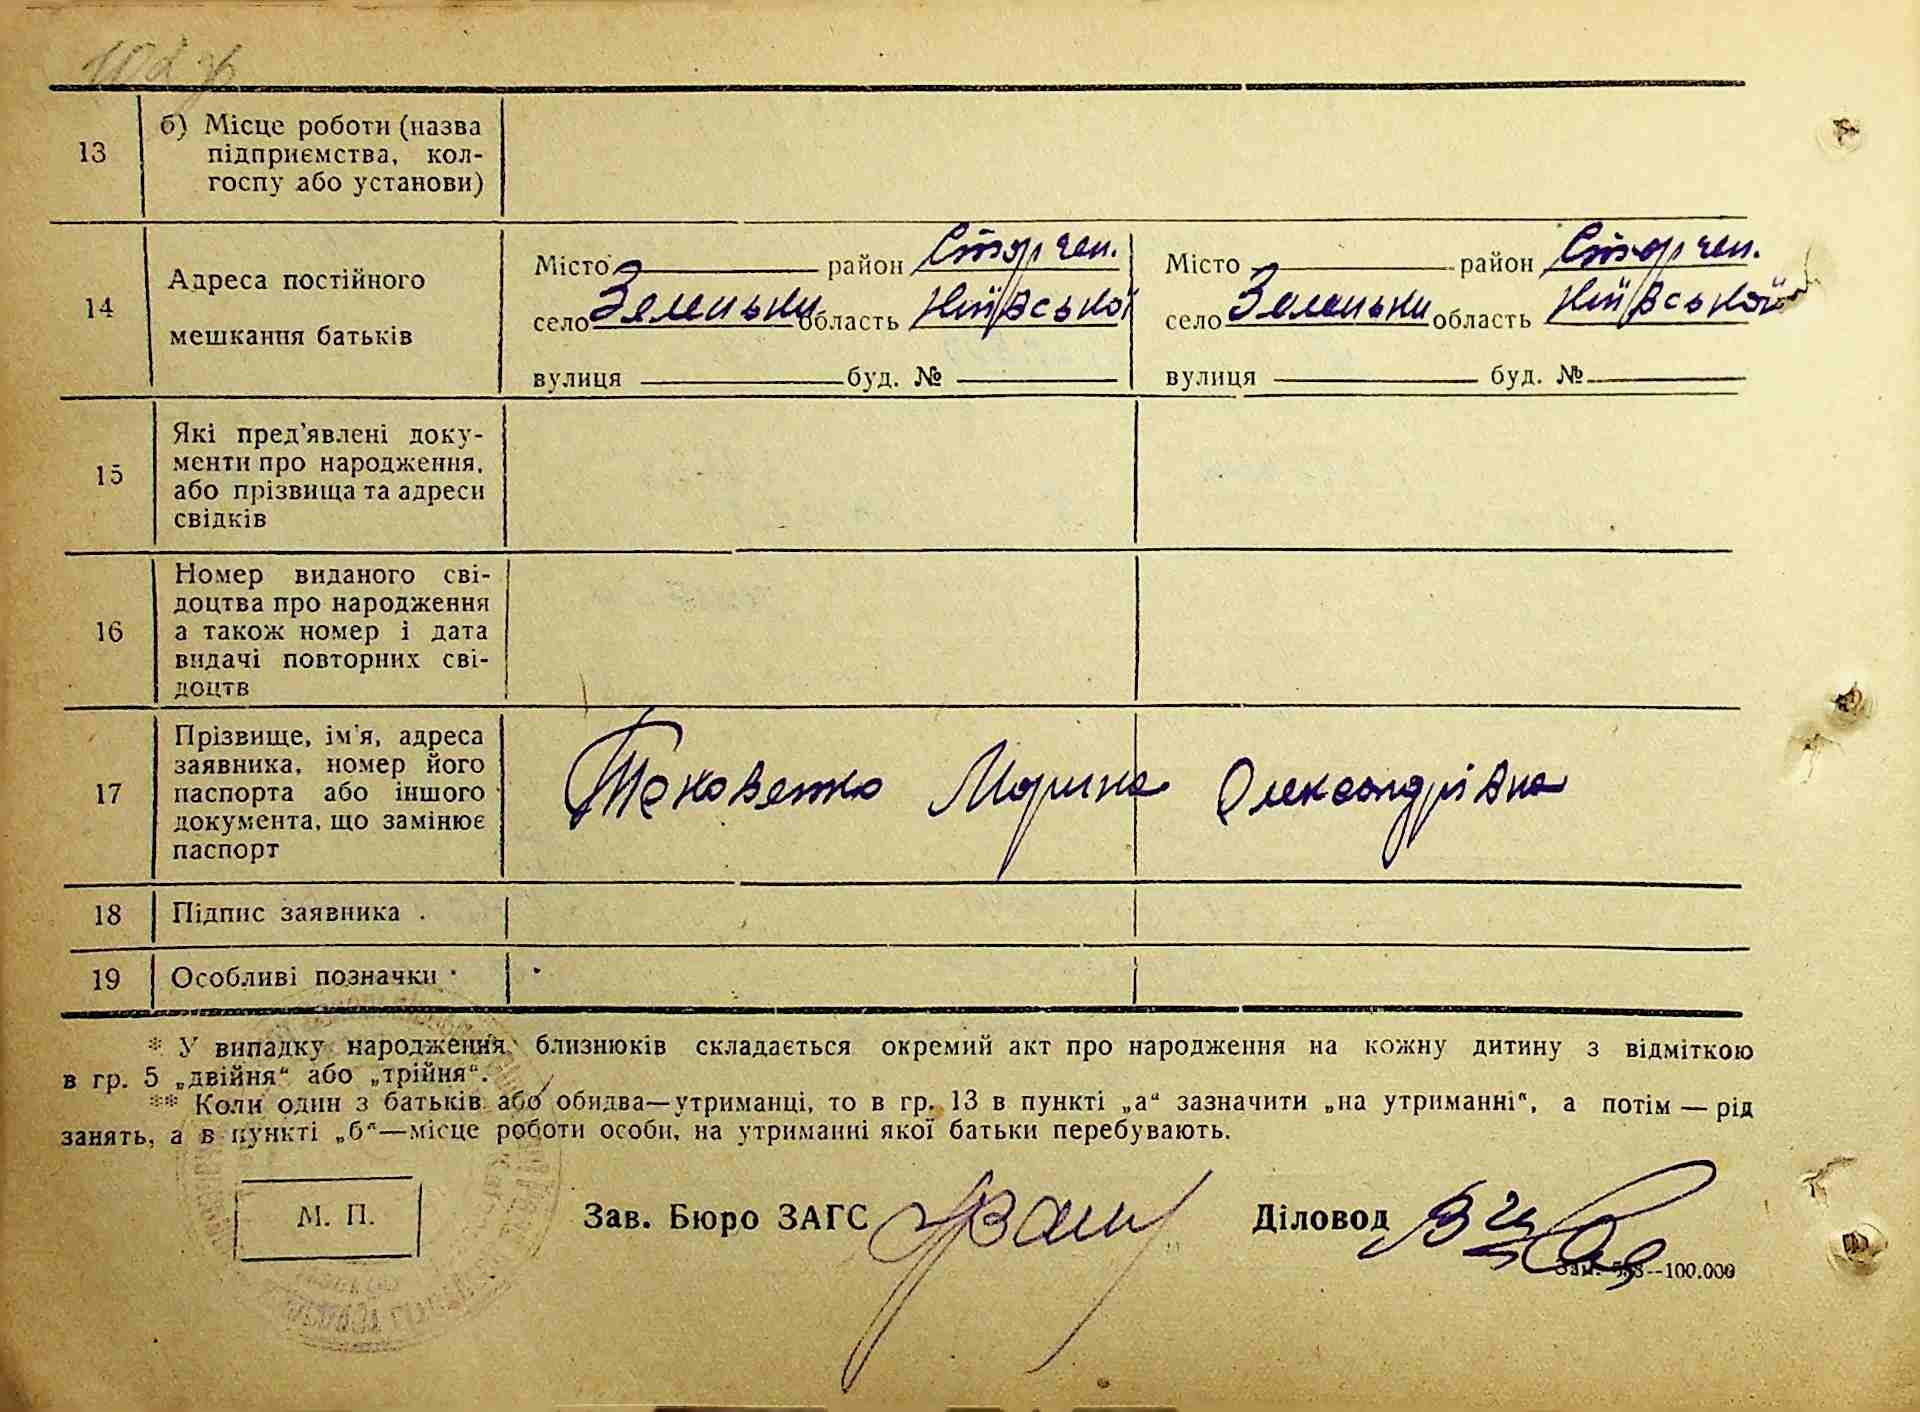 13
б) Місце роботи (назва
підприємства, кол-
госпу або установи)
14
Адреса постійного
мешкання батьків
Місто район
село Зеленьки область Київської
вулиця буд. №
Місто район
село Зеленьки область Київської
вулиця буд. №
15
Які пред’явлені доку-
менти про народження,
або прізвища та адреси
свідків
16
Номер виданого сві-
доцтва про народження
а також номер і дата
видачі повторних сві-
доцтв
17
Прізвище, ім’я, адреса
заявника, номер його
паспорта або іншого
документа, що замінює
паспорт
Марина Олександрівна
18
Підпис заявника .
19
Особливі позначки
* У випадку народження близнюків складається окремий акт про народження на кожну дитину з відміткою
в гр. 5 „двійня“ або „трійня“.
** Коли один з батьків або обидва—утриманці, то в гр. 13 в пункті „а“ зазначити „на утриманні“, а потім — рід
занять, а в пункті „б“—місце роботи особи, на утриманні якої батьки перебувають.
М. П.
Зав. Бюро ЗАГС
Діловод
Зам. —100.000